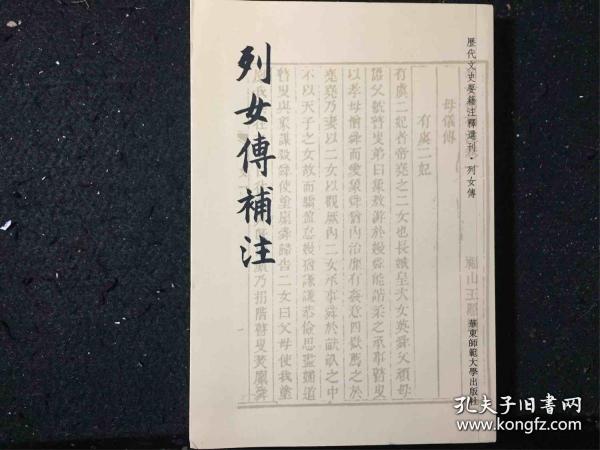 列女傳補注
歷代文史要籍注釋選刊·列女傳
華東師範大學出版社
母儀傳
有虞二妃
有虞二妃者帝堯之二女也長娥皇次女英舜父頑母
嚚父號瞽叟弟曰象敖游於嫚舜能諧柔之承事瞽叟
以孝母憎舜而愛象舜猶內治靡有姦意四嶽薦之於
堯堯乃妻以二女以觀厥內二女承事舜於畎畝之中
不以天子之女故而驕盈怠嫚猶謙謙恭儉思盡婦道
瞽叟與象謀殺舜使塗廩舜歸告二女曰父母使我塗
乃捐階瞽叟焚廩舜
孔夫子旧書网
www.kongfz.com